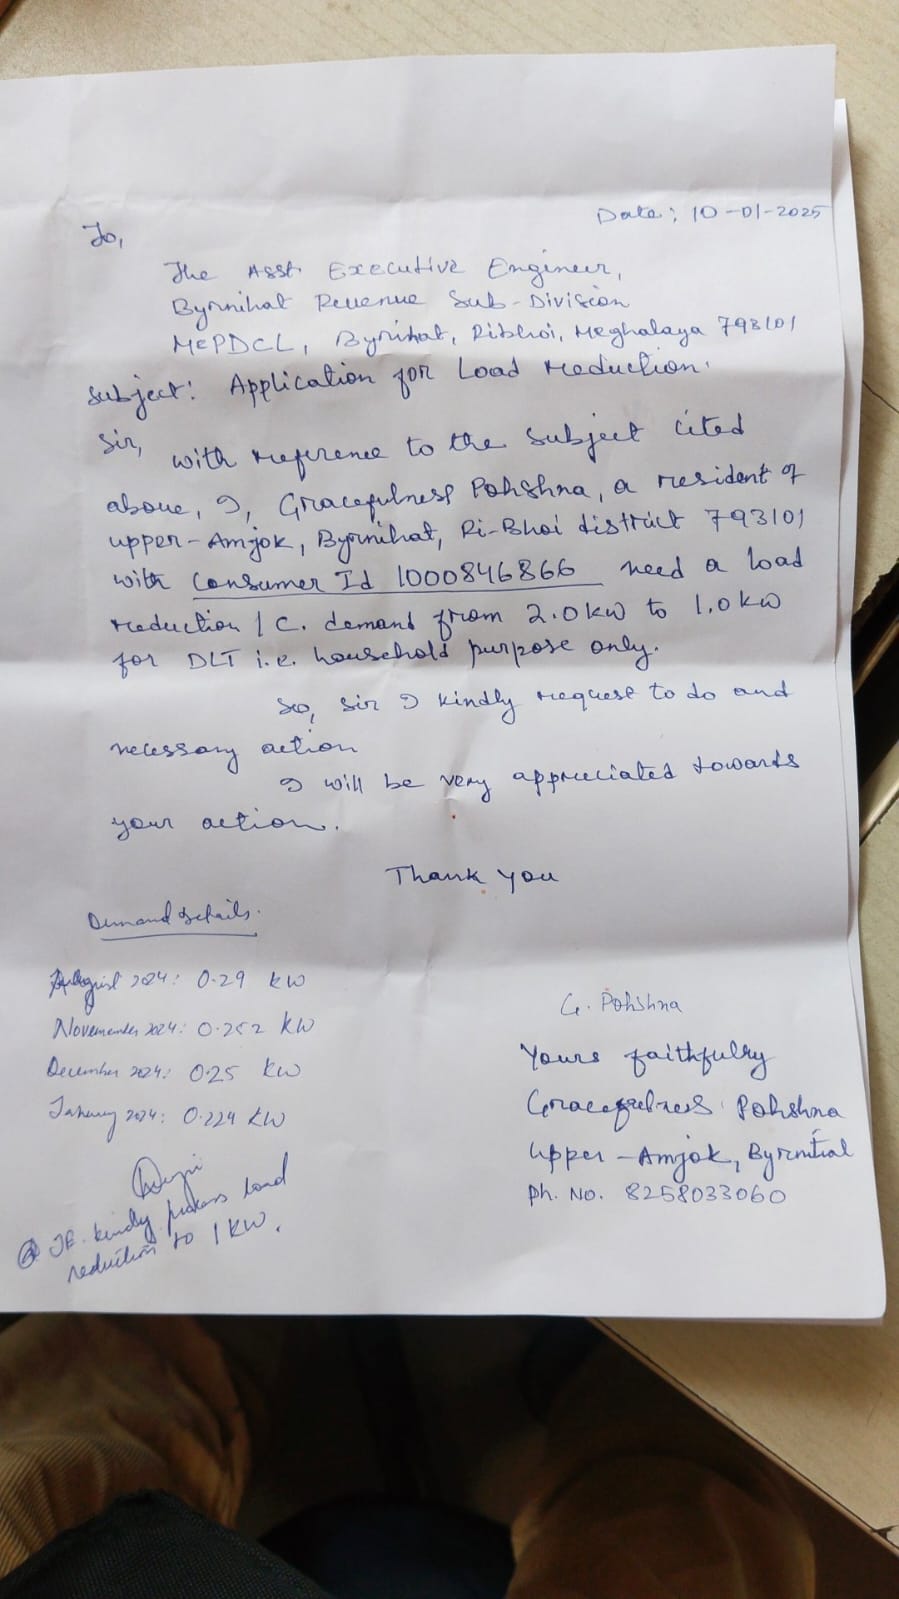 Date: 10-01-2025
To,
The Asst. Executive Engineer,
Byrnihat Revenue Sub-Division
MePDCL, Byrnihat, Ribhoi, Meghalaya 793101
Subject: Application for Load reduction.
Sir,
with reference to the subject cited
above, I, Gracefulness Pohshna, a resident of
upper-Amjok, Byrnihat, Ri-Bhoi district 793101
with Consumer Id 1000846866 need a load
reduction / C. demand from 2.0kw to 1.0kw
for DLT i.e. household purpose only.
So, sir I kindly request to do and
necessary action
I will be very appreciated towards
your action.
Thank you
Demand details.
August 2024: 0.29 KW
Novemember 2024: 0.252 KW
December 2024: 0.25 KW
January 2024: 0.224 KW
@ JE. kindly process load
reduction to 1 KW.
G. Pohshna
Yours faithfully
Gracefulness Pohshna
Upper-Amjok, Byrnihat
Ph. No. 8258033060